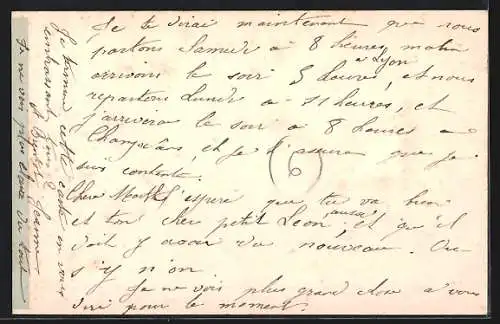 Je te dirai maintenant que nous
partons Samedi à 8 heures matin
arrivons le soir 5 heures, à Lyon et nous
repartons Lundi à 11 heures, et
j'arriverai le soir à 8 heures à
et je t'assure que je
suis contente.
6
Chère j'espère que tu va bien
et ton cher petit Léon aussi, et qu'il
doit y avoir du nouveau. Ou
s'y n'on.
Je ne vois plus grand chose à vous
dire pour le moment.
Je termine cette carte en vous
embrassant bien
Je ne vois plus clair du tout